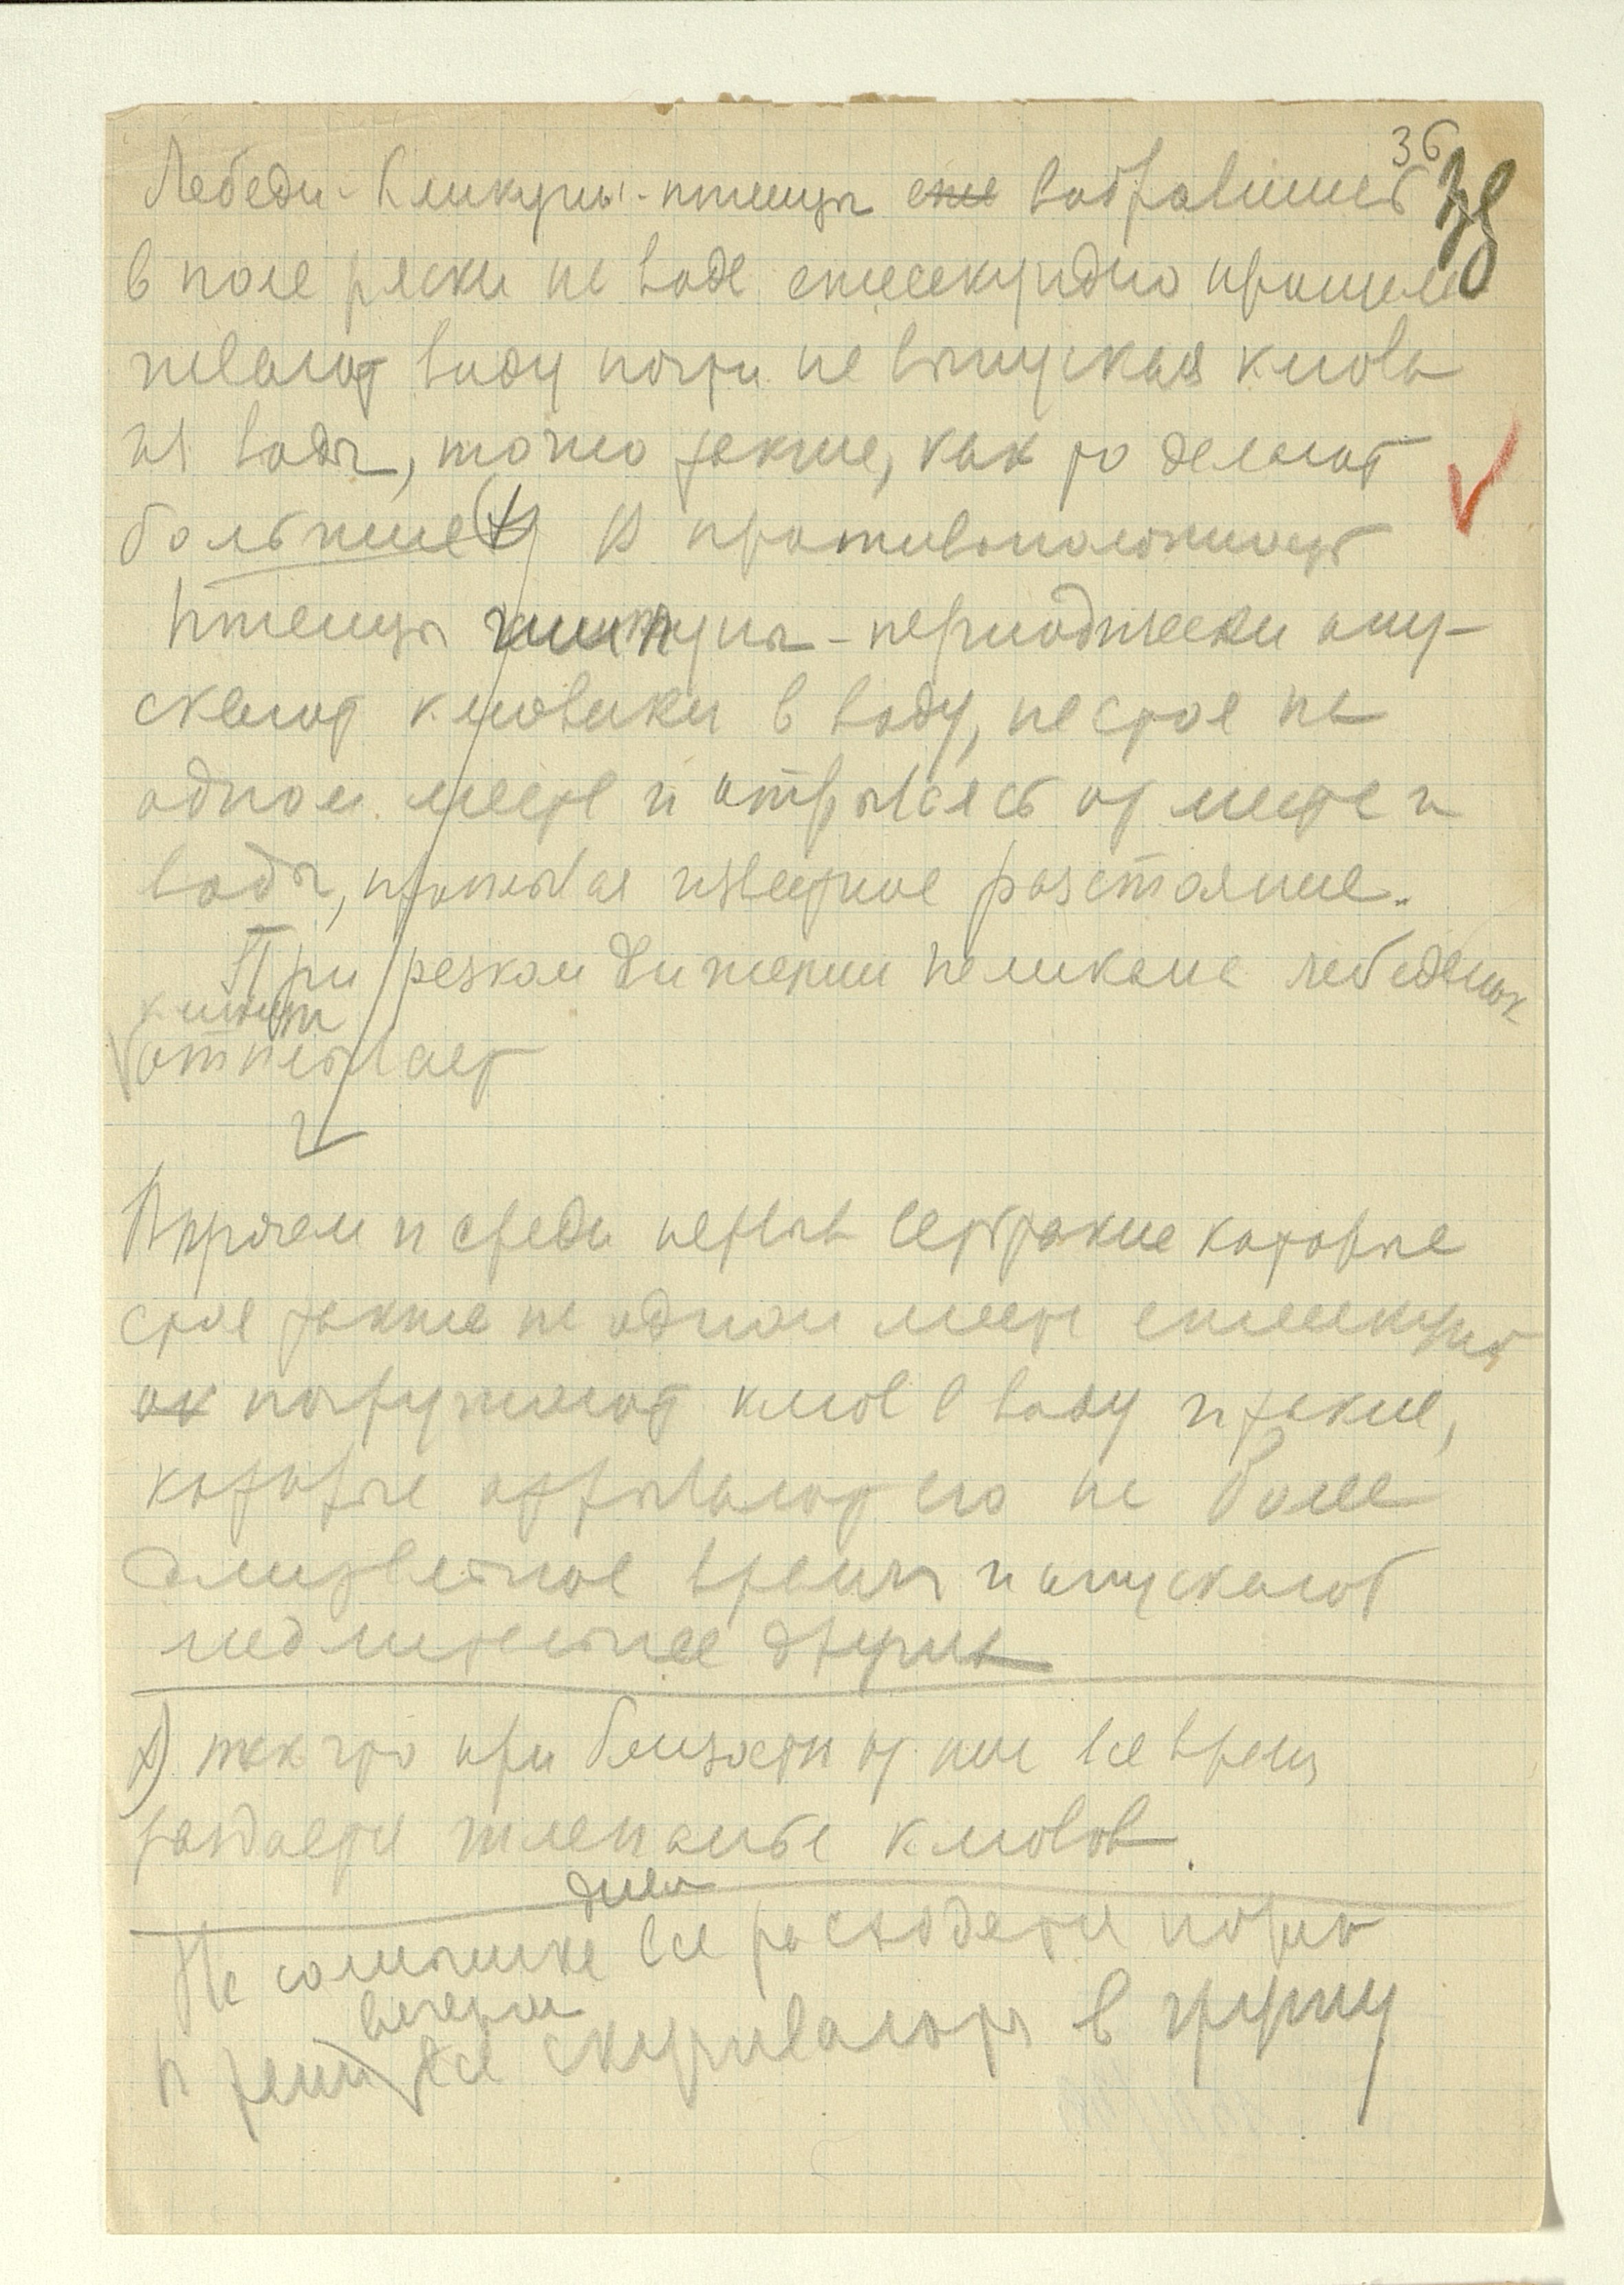 36
38
Лебеди-Кликуны-птенцы еже забравшись
в поле ряски на воде ежесекундно прощелк
пывают воду почти не выпуская клюва
из воды, точно также, как то делают
большие x) В противоположность
птенцы шипуны - периодически опу-
скают клювики в воду, не стоя на
одном месте и отрываясь от места и
воды, проплывая известное разстояние.
При резком движении пеликана лебеденок
отплывает
Впрочем и среди первых есть такие которые
стоя также на одном месте ежесекунд
но погружают клюв в воду и такие,
которые отрывают его на более
длительное время и опускают
медлительнее других
x) так что при близости от них все время
раздается шлепанье клювов.
днем
На солнышке все расходятся порознь
вечером
в тени все скучиваются в группу